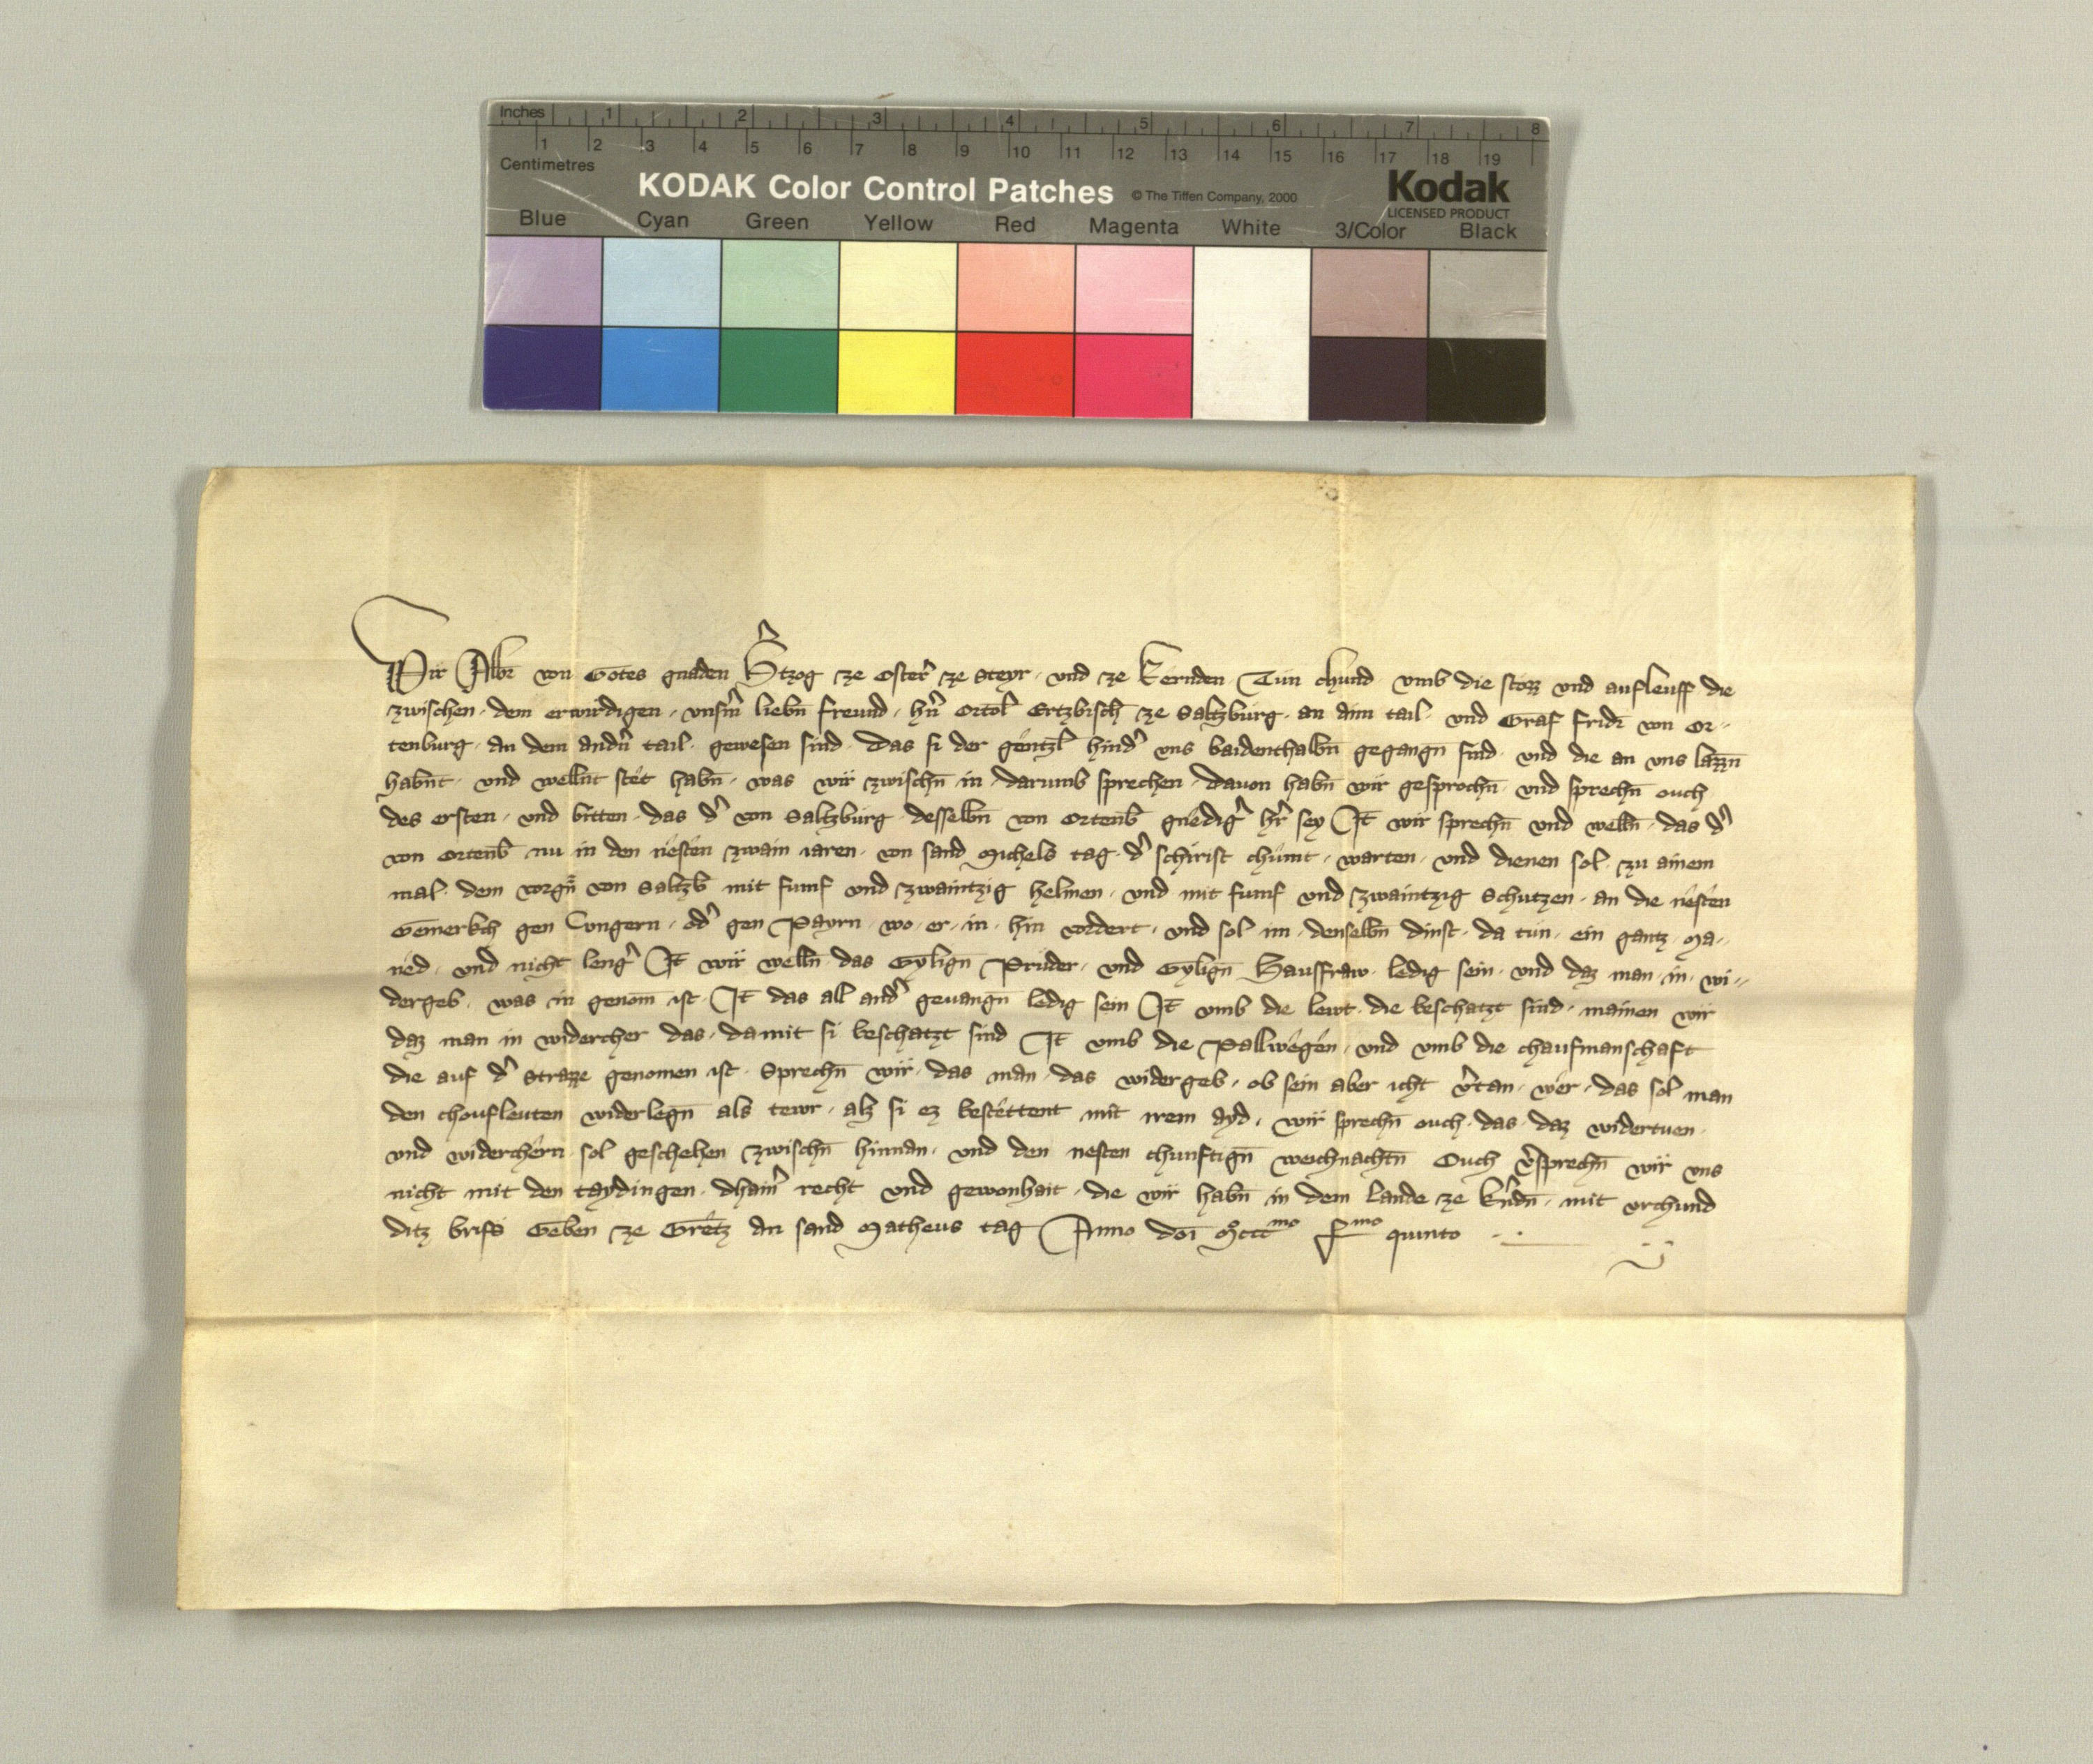 Inches 1 2 3 4 5 6 7 8
1 2 3 4 5 6 7 8 9 10 11 12 13 14 15 16 17 18 19
Centimetres
KODAK Color Control Patches © The Tiffen Company, 2000 Kodak
LICENSED PRODUCT
Blue Cyan Green Yellow Red Magenta White 3/Color Black
Wir Albr̄ von Gotes gnaden H̾tzog ze Oster̾ ze Steyr · vnd ze Kernden Tun chund vmb die stozz vnd aufleuff die
zwischen · dem erwirdigen · vnsm̾ liebn̄ freund · hn̾ Ortol̄ Ertzbisch̄ ze Saltzburg · an aim tail · vnd Graf Fridr̄ von Or-
tenburg · an dem andn̾ tail · gewesen sind · Das si der gentzl̄ hind̾ vns baidenthalbn̄ gegangn̄ sind · vnd die an vns lazzn̄
habnt · vnd wellnt stet habn̄ · was wir zwischn̄ in darumb sprechen · Dauon habn̄ wir gesprochn̄ · vnd sprechn̄ ouch
des ersten · vnd bitten · das d̾ von Saltzburg · desselbn̄ von Ortenb̄ gnedig̾ hr̾ sey It̄ wir sprechn̄ vnd welln̄ · das d̾
von Ortenb̄ nu in den nesten zwain iaren · von sand Michels tag · d̾ schirist chumt · warten · vnd dienen sol · zu ainem
mal · dem vorgn̄ von Saltzb̄ mit fumf vnd zwaintzig helmen · vnd mit fumf vnd zwaintzig Schutzen · an die nesten
Gemerkch gen Vngern · od̾ gen Payrn · wo · er · in · hin voddert · vnd sol im · denselbn̄ dinst · da tun · ein gantz · Ma-
ned · vnd nicht leng̾ It̄ wir welln̄ das Gylign̄ Pruder · vnd Gylign̄ Hausfraw · ledig sein · vnd daz man · in · wi-
dergeb · was in genom̄ ist · It̄ das all and̾ geuangn̄ ledig sein It̄ vmb die lewt · die beschatzt sind · mainen wir
daz man in widercher das · damit si beschatzt sind It̄ vmb die Pallwegen · vnd vmb die chaufmanschaft
die auf d̾ Strazze genomen ist · Sprechn̄ wir · das man · das widergeb · ob sein aber icht v̾tan · wer · das sol man
den choufleuten widerlegn̄ als tewr · alz si ez bestettent mit irem ayd · wir sprechn̄ ouch · das · daz widertuen ·
vnd widerchern · sol geschehen zwischn̄ hinnan · vnd den nesten chunftign̄ weichnachtn̄ Ouch v̾sprechn̄ wir vns
nicht mit den taydingen · dhain̾ recht vnd gewonhait · die wir habn̄ in dem lande ze Kn̾dn̄ · mit vrchund
ditz brifs Geben ze Gretz an sand Matheus tag Anno dōi Mᵒcccᵐᵒ Lᵐᵒ quinto